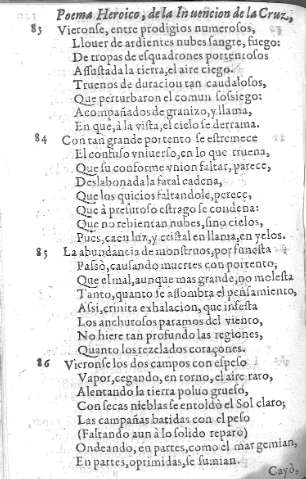 Poema Heroico, de la Inuencion de la Cruz,
83 Vieronse, entre prodigios numerosos,
Llouer de ardientes nubes sangre, fuego:
De tropas de esquadrones portentosos
Assustada la tierra, el aire ciego.
Truenos de duracion tan caudalosos,
Que perturbaron el comun sossiego:
Acompañados de granizo, y llama,
En que, à la vista, el cielo se derrama.
84 Con tan grande portento se estremece
El confuso vniuerso, en lo que truena,
Que su conforme vnion faltar, parece,
Deslabonada la fatal cadena,
Que los quicios faltandole, perece,
Que à presuroso estrago se condena:
Que no rebientan nubes, sino cielos,
Pues, caen luz, y cristal en llama, en yelos.
85 La abundancia de monstruos, por funesta
Passò, causando muertes con portento,
Que el mal, aunque mas grande, no molesta
Tanto, quanto se assombra el pensamiento,
Assi, crinita exhalacion, que infesta
Los anchurosos paramos del viento,
No hiere tan profundo las regiones,
Quanto los rezelados coraçones.
86 Vieronse los dos campos con espeso
Vapor, cegando, en torno, el aire raro,
Alentando la tierra poluo grueso,
Con secas nieblas se entoldò el Sol claro;
Las campañas batidas con el peso
(Faltando aun à lo solido reparo)
Ondeando, en partes, como el mar gemian,
En partes, optimidas, se sumian.
Cayò,